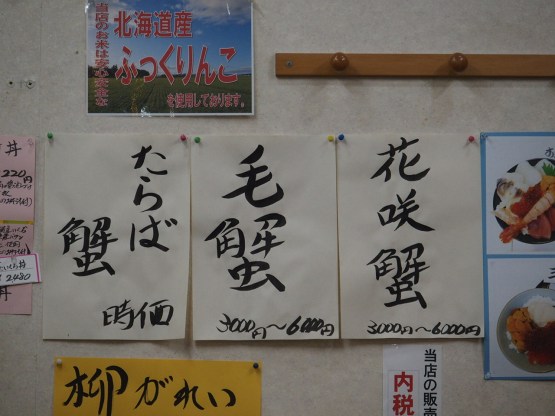 当店のお米は安心安全な
北海道産
ふっくりんこ
を使用しております。
花咲蟹
3000円〜6000円
毛蟹
3000円〜6000円
たらば蟹
時価
柳がれい
当店の販売
内税
丼
220円
2480
丼